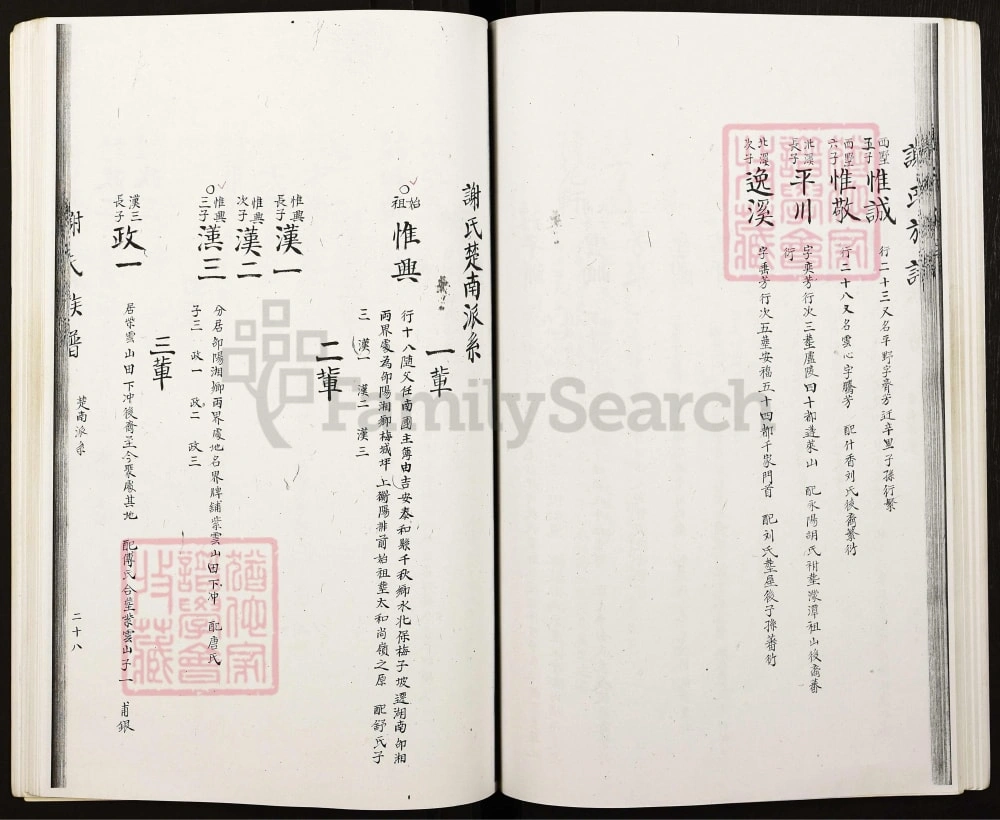 謝氏族譜
西墅五子 惟誠 行二十三又名平野字膏芳迁辛里子孫行繁
西墅六子 惟敬 行二十八又名雲心字騰芳 配什香刘氏後裔繁衍
北溪長子 平川 字奕芳行次三塟盧陵四十都造萊山 配永陽胡氏祔塟濛潭祖山後裔蕃
衍
北溪次子 逸溪 字喬芳行次五塟安福五十四都千家門首 配刘氏塟屋後子孫蕃衍
謝氏楚南派系
一輩
始祖 惟興 行十八隨父任南團主簿由吉安泰和縣千秋鄉水北保梅子坡遷湖南卲湘
兩界處為卲陽湘鄉梅城坪上衡陽排前始祖塟太和尚嶺之原 配舒氏子
三 漢一 漢二 漢三
二輩
惟興長子 漢一
惟興次子 漢二
惟興三子 漢三 分居卲陽湘鄉兩界處地名界牌鋪紫雲山田下冲 配唐氏
子三 政一 政二 政三
三輩
漢三長子 政一 居紫雲山田下冲後裔至今聚處其地 配傅氏合塟紫雲山子一 甫銀
謝氏族譜 楚南派系 二十八
FamilySearch